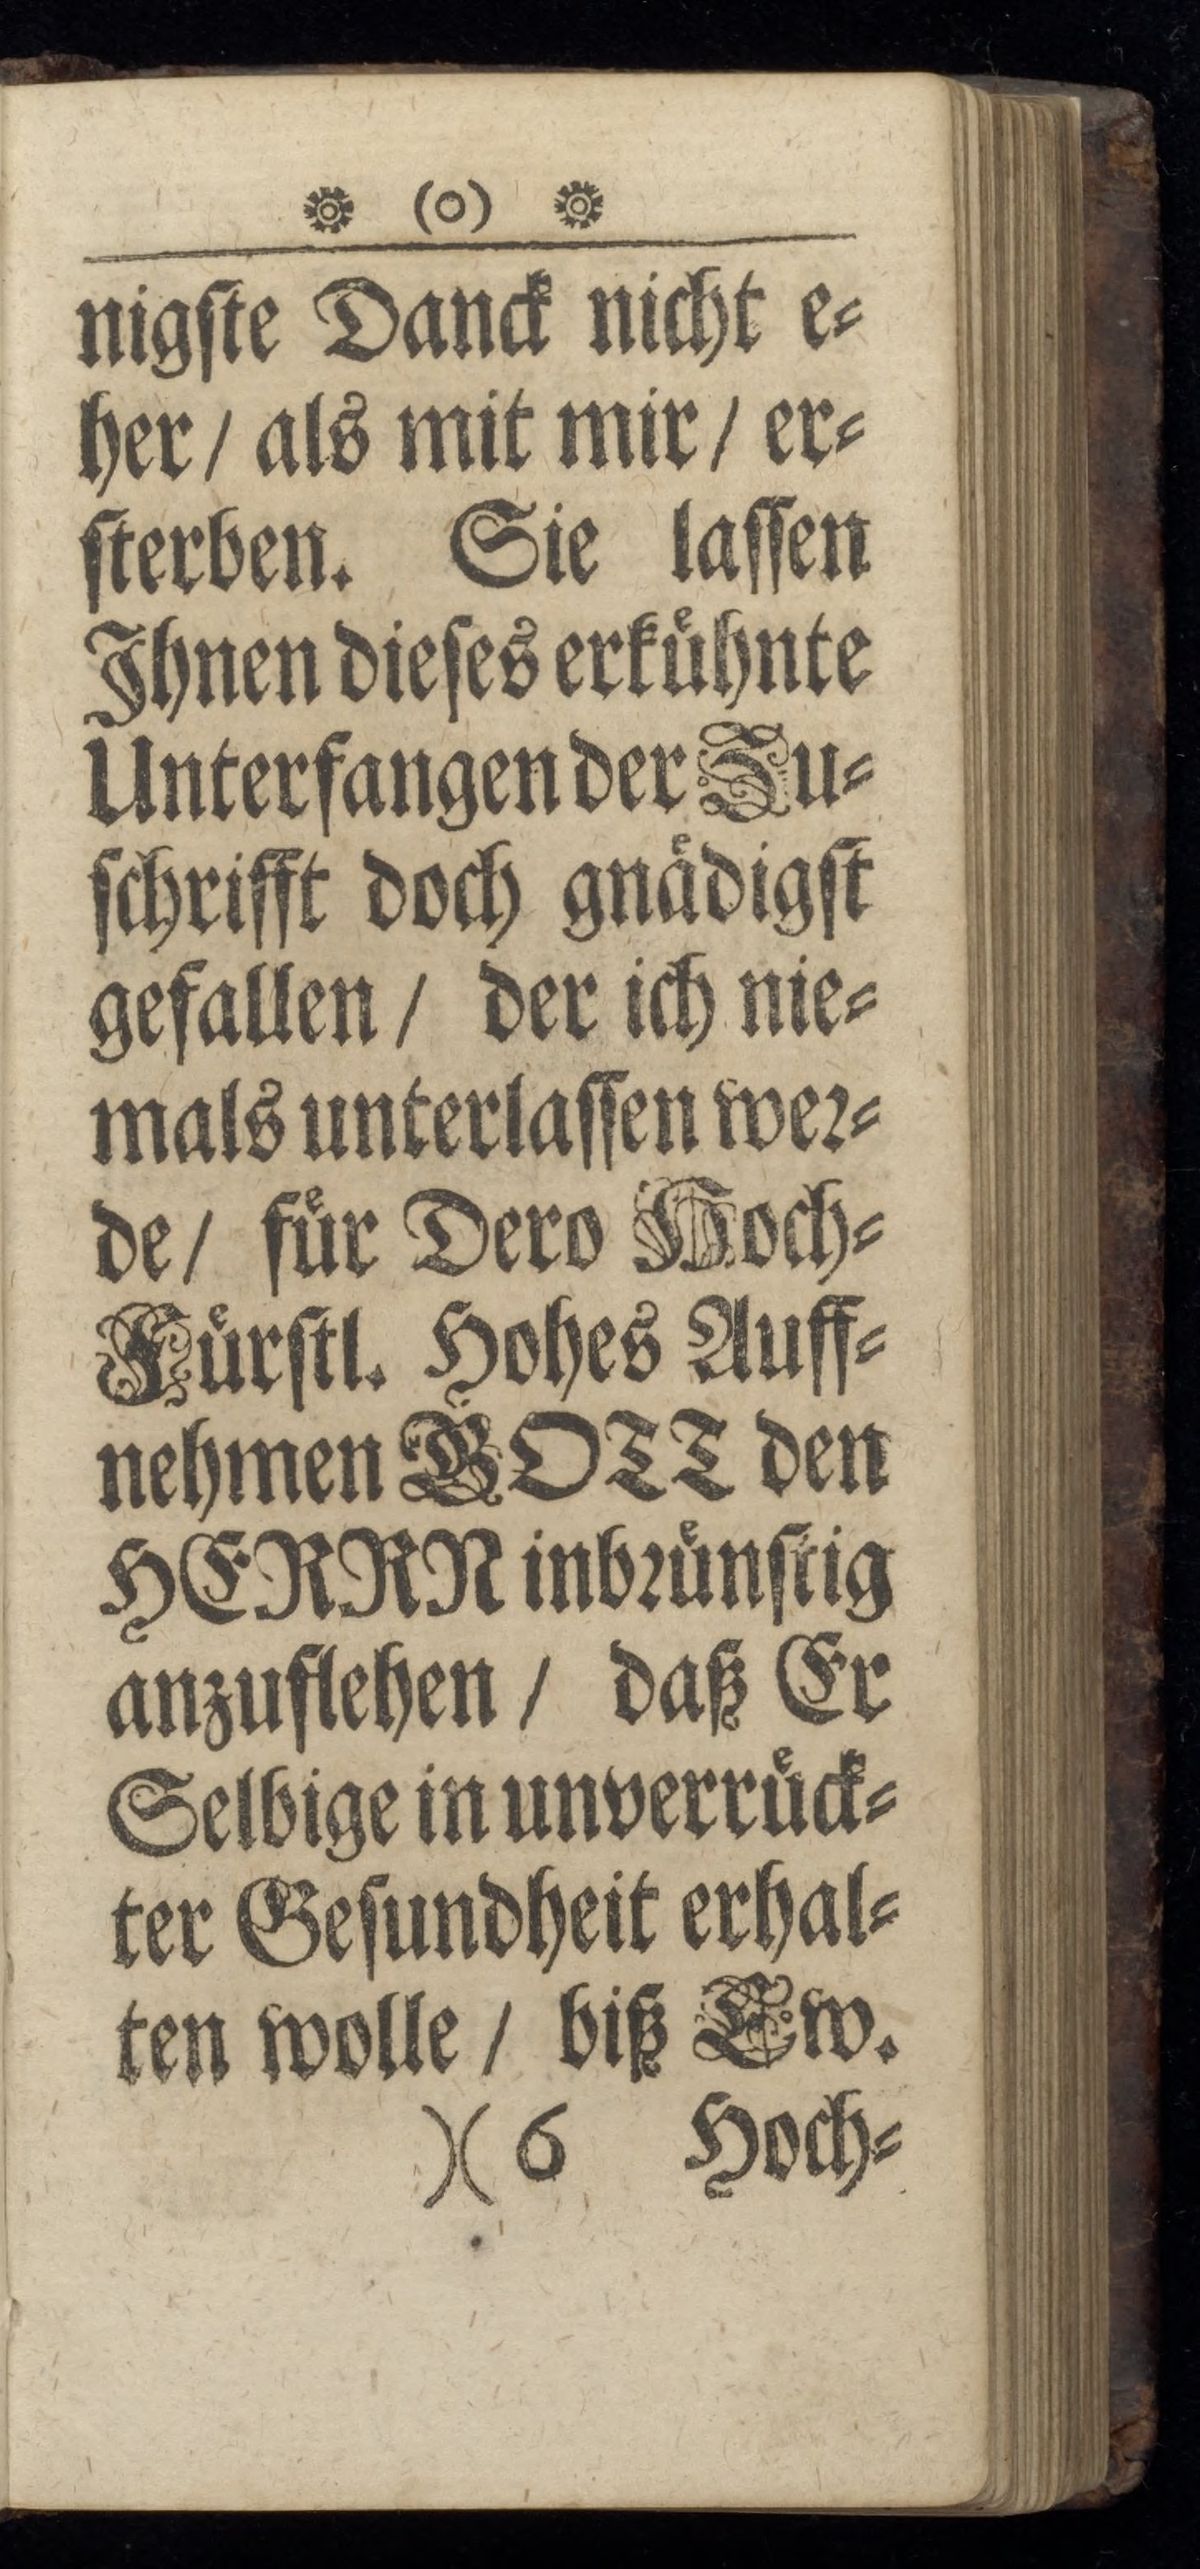 ❁ (o) ❁
nigſte Danck nicht e⸗
her / als mit mir / er⸗
ſterben. Sie laſſen
Ihnen dieſes erkuͤhnte
Unterfangen der Zu⸗
ſchrifft doch gnaͤdigſt
gefallen / der ich nie⸗
mals unterlaſſen wer⸗
de / fuͤr Dero Hoch⸗
Fuͤrſtl. Hohes Auff⸗
nehmen GOTT den
HERRN inbruͤnſtig
anzuflehen / daß Er
Selbige in unverruͤck⸗
ter Geſundheit erhal⸗
ten wolle / biß Ew.
)( 6 Hoch⸗